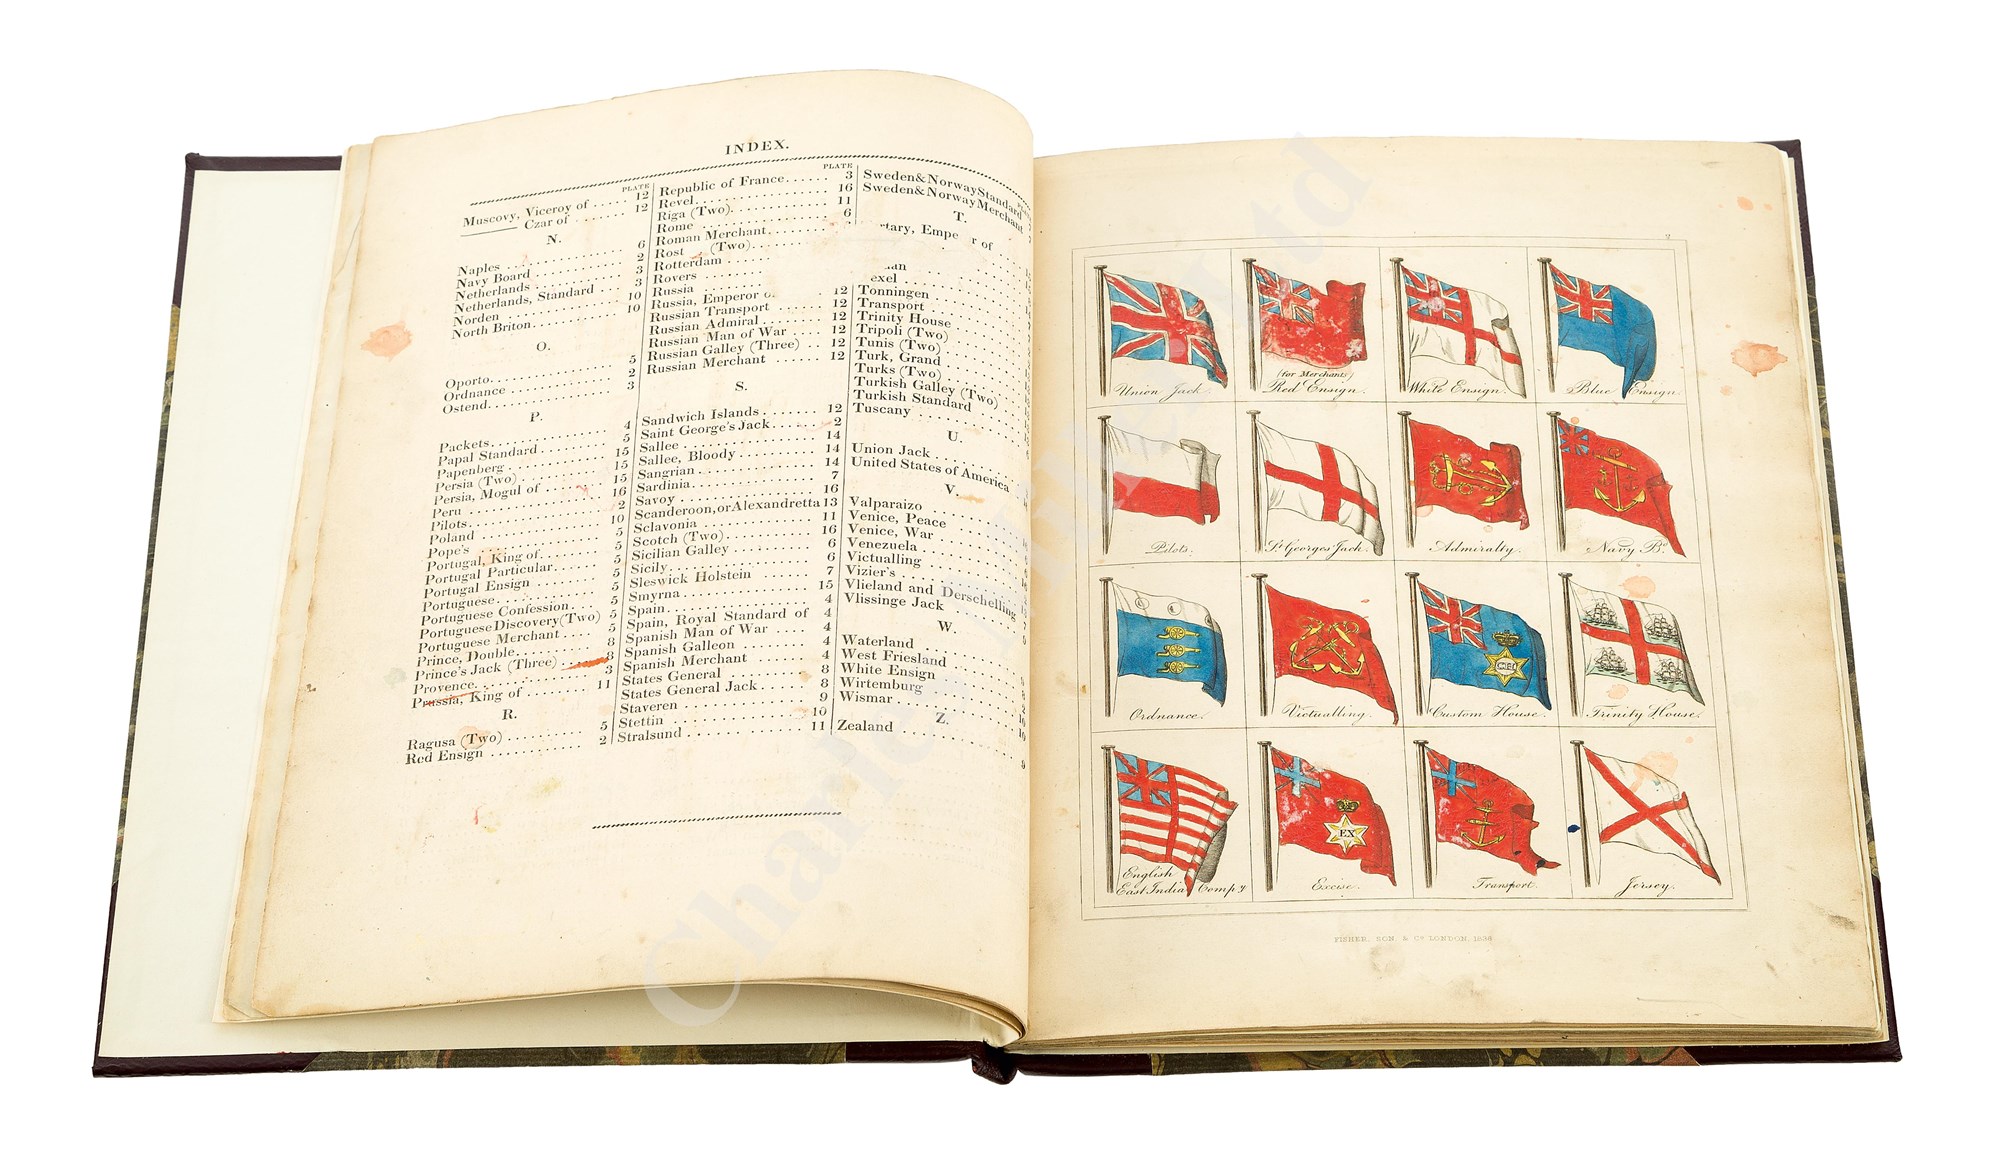 INDEX.
PLATE
Muscovy, Viceroy of ..... 12
Czar of ........ 12
N.
Naples ................ 6
Navy Board ............ 2
Netherlands ........... 3
Netherlands, Standard ... 3
Norden ............... 10
North Briton ........... 10
O.
Oporto................ 5
Ordnance ............. 2
Ostend................ 3
P.
Packets............... 4
Papal Standard......... 5
Papenberg ............ 15
Persia (Two) .......... 15
Persia, Mogul of ....... 15
Peru ................. 16
Pilots................. 2
Poland ............... 10
Pope's ............... 5
Portugal, King of....... 5
Portugal Particular...... 5
Portugal Ensign ........ 5
Portuguese............ 5
Portuguese Confession. .. 5
Portuguese Discovery (Two) 5
Portuguese Merchant .... 5
Prince, Double.......... 8
Prince's Jack (Three) .... 8
Provence.............. 3
Prussia, King of ........ 11
R.
Ragusa (Two) .......... 5
Red Ensign ............ 2
PLATE
Republic of France...... 3
Revel................. 16
Riga (Two)............ 11
Rome ................ 6
Roman Merchant........
Rost (Two).....
Rotterdam ......
Rovers ........
Russia ........
Russia, Emperor 12
Russian Transport ...... 12
Russian Admiral ........ 12
Russian Man of War .... 12
Russian Galley (Three) .. 12
Russian Merchant ...... 12
S.
Sandwich Islands ....... 12
Saint George's Jack...... 2
Sallee ................ 14
Sallee, Bloody .......... 14
Sangrian .............. 14
Sardinia .............. 7
Savoy ................ 16
Scanderoon, or Alexandretta 13
Sclavonia ............. 11
Scotch (Two) .......... 16
Sicilian Galley ......... 6
Sicily................. 6
Sleswick Holstein ...... 7
Smyrna .............. 15
Spain................. 4
Spain, Royal Standard of 4
Spanish Man of War .... 4
Spanish Galleon ........ 4
Spanish Merchant ...... 4
States General ......... 8
States General Jack...... 8
Staveren .............. 9
Stettin ................ 10
Stralsund .............. 11
Sweden & Norway Standard
Sweden & Norway Merchant
T.
Tonningen
Transport
Trinity House
Tripoli (Two)
Tunis (Two)
Turk, Grand
Turks (Two)
Turkish Galley (Two)
Turkish Standard
Tuscany
U.
Union Jack
United States of America
V.
Valparaizo
Venice, Peace
Venice, War
Venezuela
Victualling
Vizier's
Vlieland and Derschelling
Vlissinge Jack
W.
Waterland
West Friesland
White Ensign
Wirtemburg
Wismar
Z.
Zealand
2
Union Jack.
(for Merchants)
Red Ensign.
White Ensign.
Blue Ensign.
Pilots.
St. Georges Jack.
Admiralty.
Navy Bd.
Ordnance.
Victualling.
Custom House.
CH
Trinity House.
English
East India Comp.y
EX
Excise.
Transport.
Jersey.
FISHER, SON, & Co LONDON, 1838